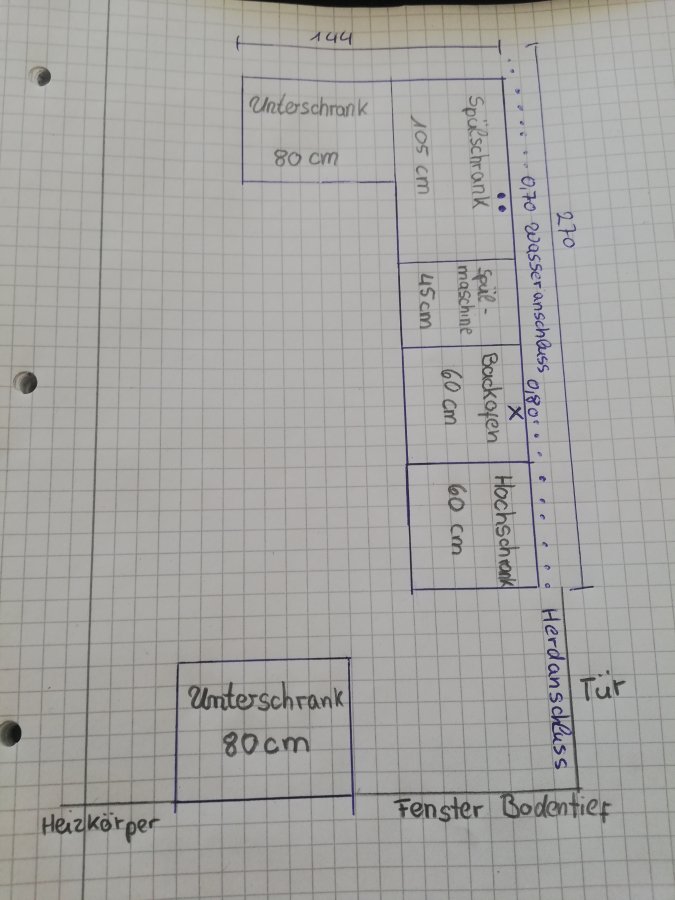 144
270
Unterschrank
80 cm
Spülschrank
105 cm
0,70 Wasseranschluss 0,80
Spül-
maschine
45cm
Backofen
60 cm
X
Hochschrank
60 cm
Herdanschluss
Tür
Unterschrank
80cm
Fenster Bodentief
Heizkörper